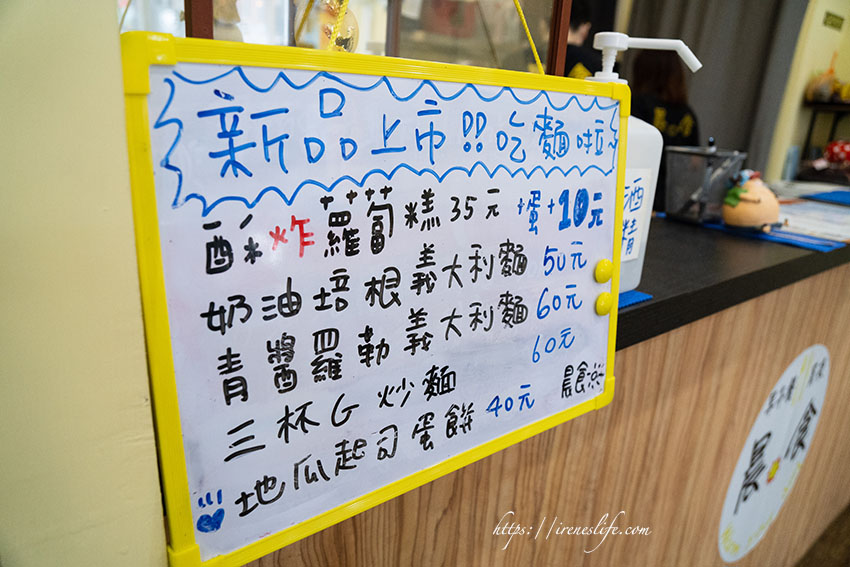 新品上市!!吃麵啦
酥炸蘿蔔糕35元 +蛋+10元
奶油培根義大利麵 50元
青醬羅勒義大利麵 60元
三杯G炒麵 60元
地瓜起司蛋餅 40元
晨食
酒精
晨食
https://ireneslife.com